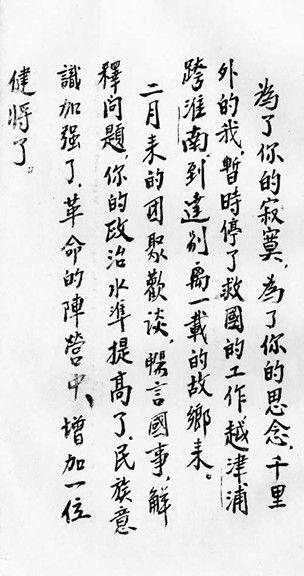 為了你的寂寞,為了你的思念,千里
外的我,暫時停了救國的工作,越津浦
跨淮南到達别离一載的故鄉来。
二月来的团聚歡谈,暢言國事,解
釋问题,你的政治水準提高了,民族意
識加强了,革命的陣營中、增加一位
健将了。